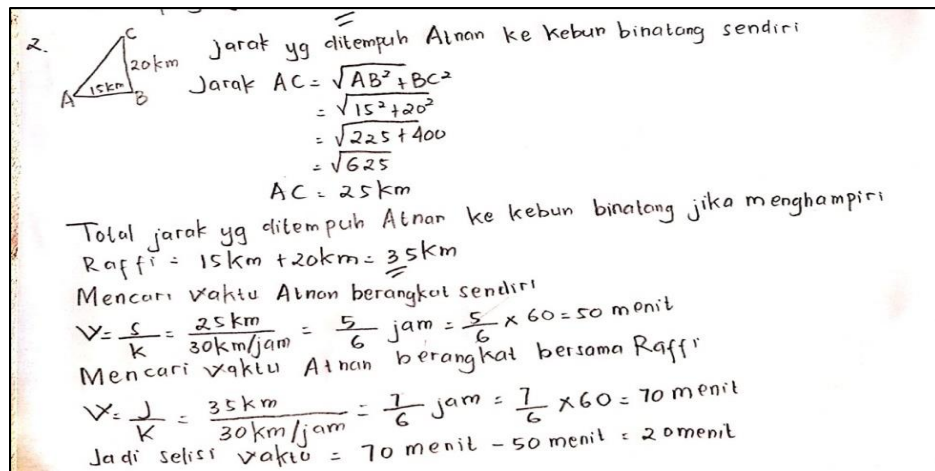 2.
C
20km
15km
A
B
Jarak yg ditempuh Atnan ke kebun binatang sendiri
Jarak AC = √AB² + BC²
= √15² + 20²
= √225 + 400
= √625
AC = 25km
Total jarak yg ditempuh Atnan ke kebun binatang jika menghampiri
Raffi = 15km + 20km = 35km
Mencari waktu Atnan berangkat sendiri
V = s/k = 25km/30km/jam = 5/6 jam = 5/6 × 60 = 50 menit
Mencari waktu Atnan berangkat bersama Raffi
V = J/K = 35km/30km/jam = 7/6 jam = 7/6 × 60 = 70 menit
Jadi selisi waktu = 70 menit - 50 menit = 20menit